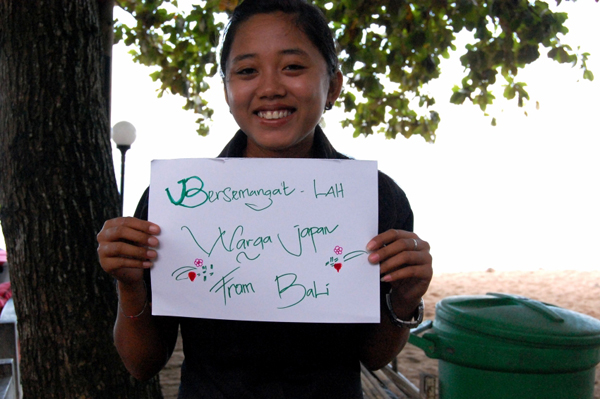 Bersemangat - LAH
Warga Japan
From Bali